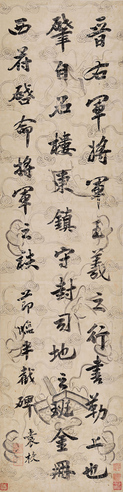 晉右軍將軍王羲之行書勒上也
肇自石樓東鎮守封司地之班金冊
西苻啓命將軍之誄
節臨半截碑 袁枚